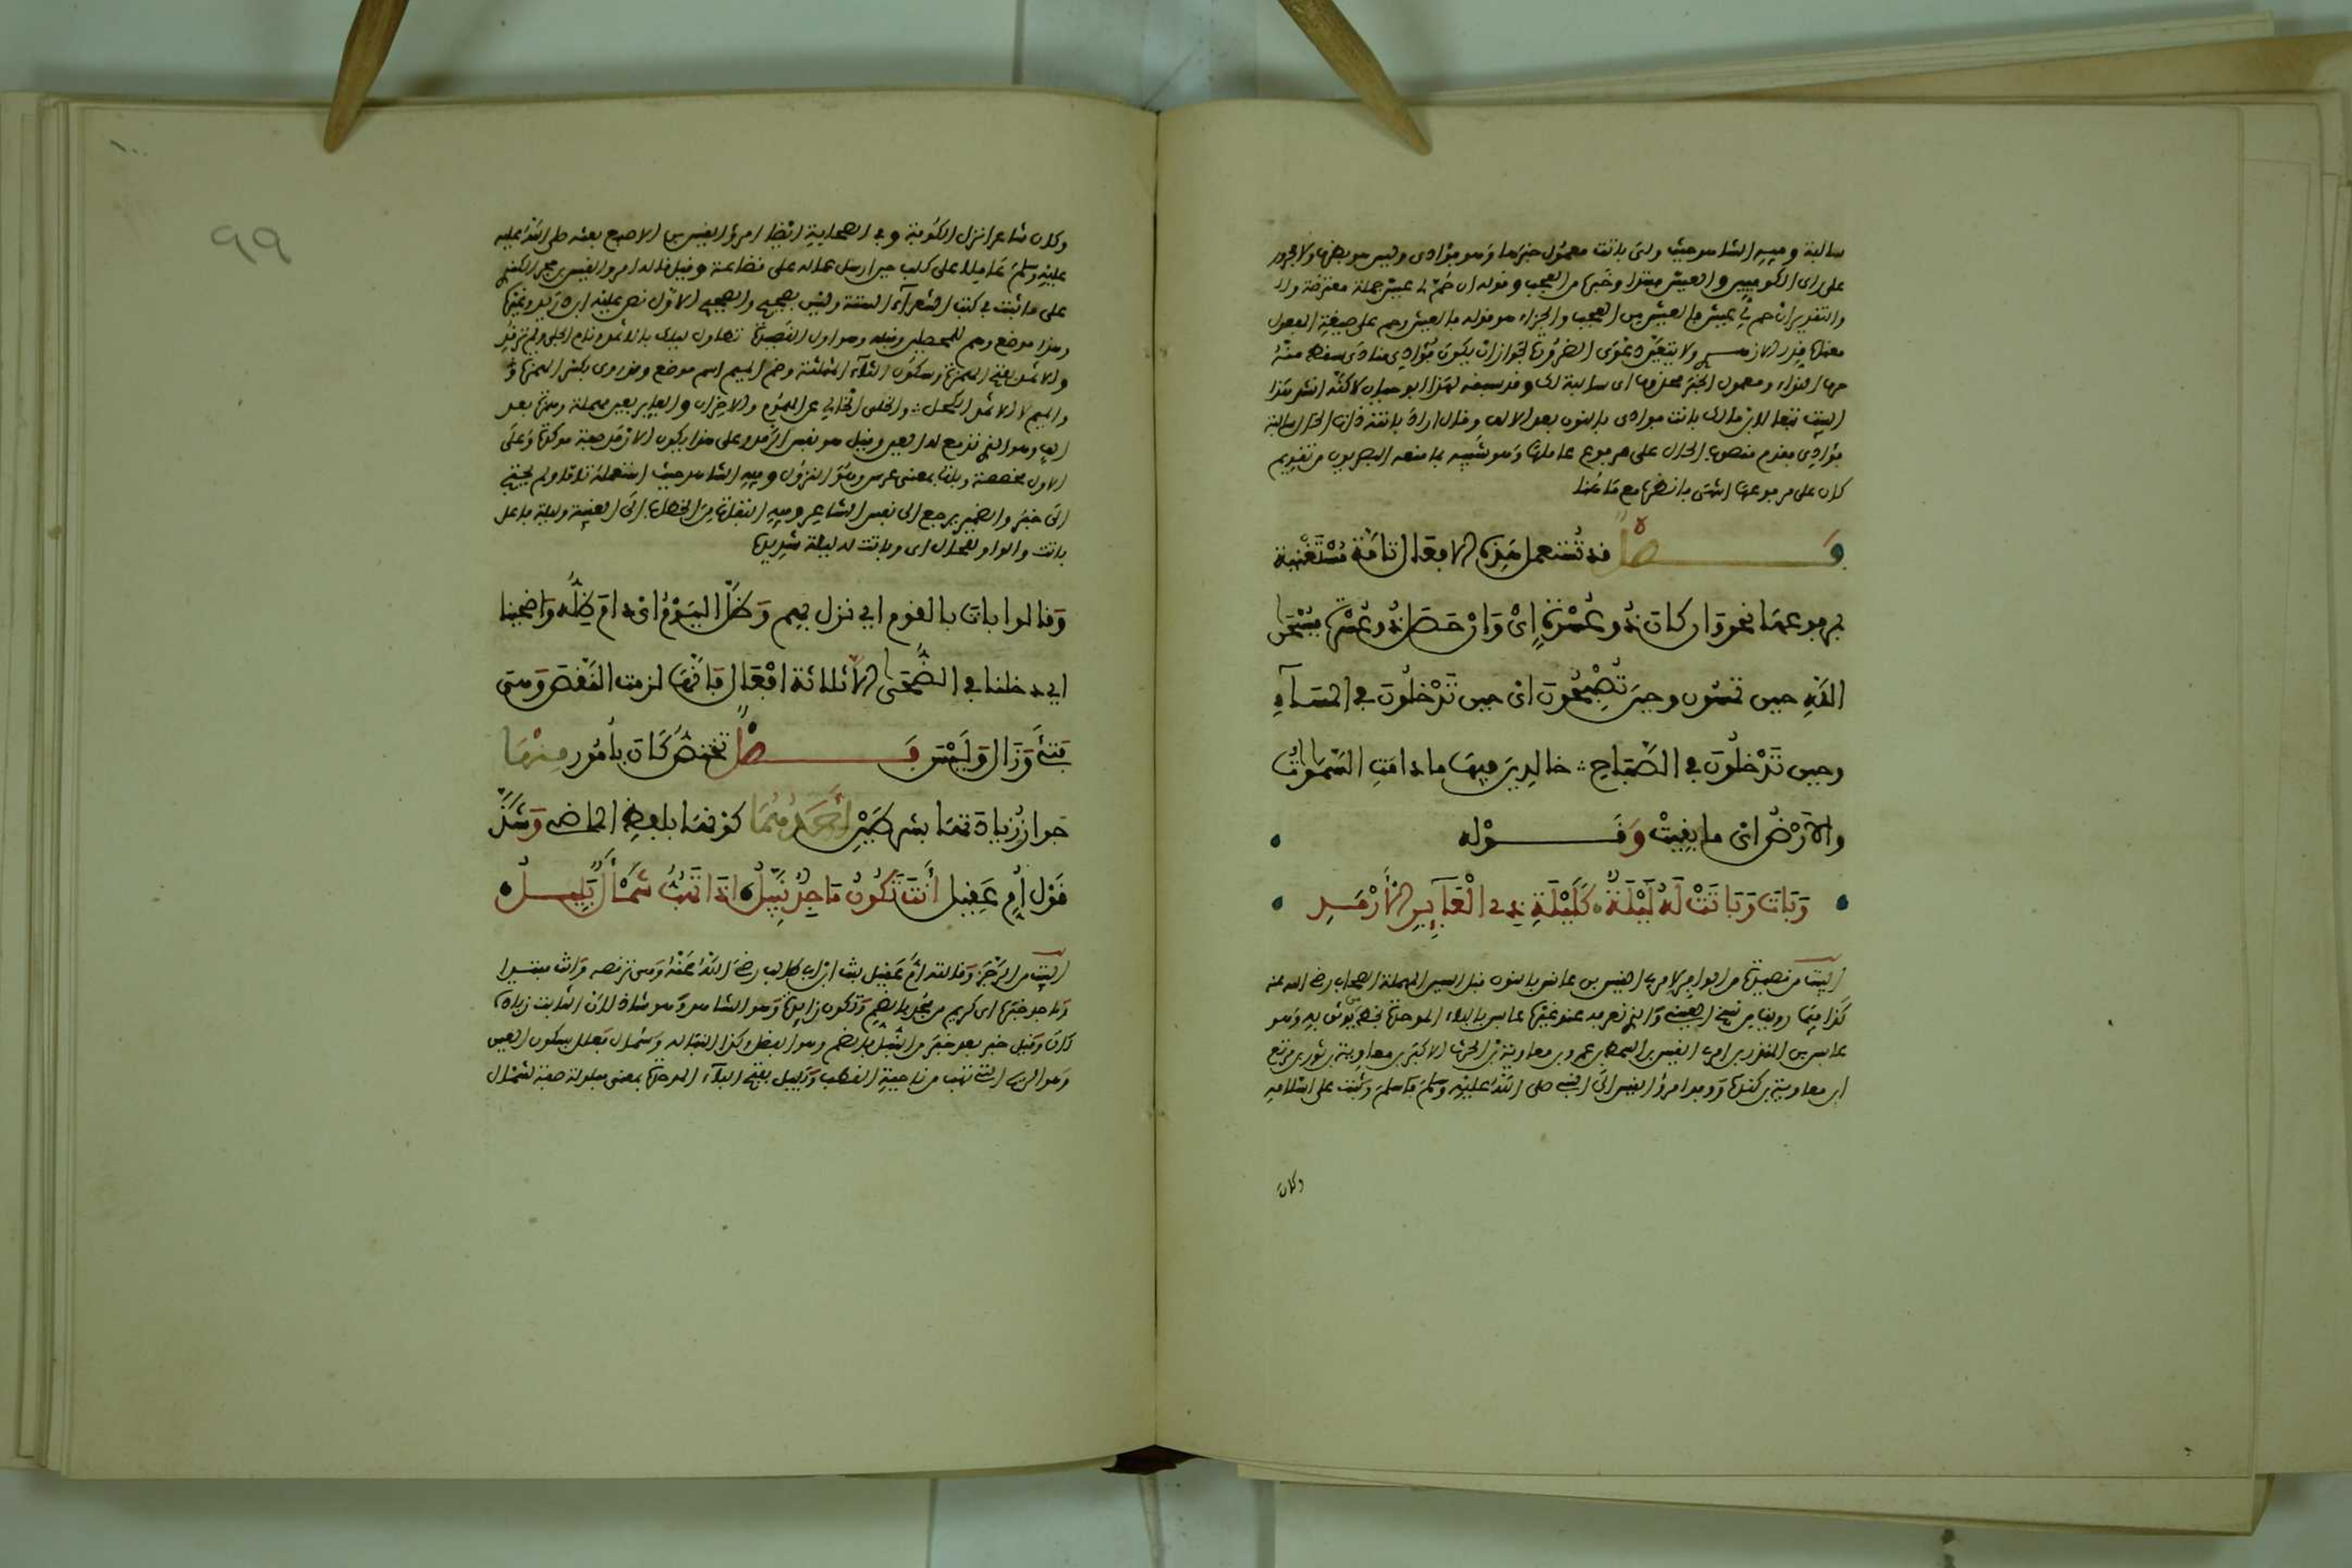 سالبة وفيه الشاهد حيث ولى باتت معمول خبرها وهو فؤادي وليس هو بظرف ولا مجرور
على راى الكوفيين والعيش مبتدا وخبره من العجب وقوله ان حم لي عيش جملة معترضة
والتقدير ان حم لي عيش فالعيش من العجب والجزاء هو قوله فالعيش وحم على صيغة المجهول
معناه قدر ولا يتعين دعوى الضرورة لجواز ان يكون فؤادي منادى سقط منه
حرف النداء ومعمول الخبر محذوفا اى سالبة لك وقد سبقه لهذا ابو حيان لاكنه انشد هذا
البيت تبعا لابن مالك باتت فؤادى بالنون بعد الالف وقال اراد باتت ذات الخال سالبة
فؤادى فقدم منصوب الخال على مرفوع عاملها وهو شبيه بما منعه البصريون من تقديم
كان على مرفوعها انتهى فانظره مع ما هنا
فصل قد تستعمل هذه الافعال تامة مستغنية
بمرفوعها نحو وان كان ذو عسرة اى وان حصل ذو عسرة فسبحان
الله حين تمسون وحين تصبحون اى حين تدخلون في المساء
وحين تدخلون في الصباح خالدين فيها ما دامت السموات
والارض اى ما بقيت وقوله
وبات وباتت له ليلة كليلة ذي العآير الأرمد
البيت من قصيدة من لامرى القيس بن عانس بالنون قبل السين المهملة الصحابي رضي الله عنه
كذا فيما روينا من نسخ العيني والذي نعرفه عند غيره عابس بالباء الموحدة فخط يوثق به وهو
عابس بن المنذر بن امرى القيس بن السمط بن عمرو بن معاوية بن الحرث الاكبر بن معاوية بن ثور بن مرتع
ابن معاوية بن كندة ووفد امرؤ القيس الى النبي صلى الله عليه وسلم فاسلم وثبت على اسلامه
وكان
١٠٠
٩٩
وكان شاعرا نزل الكوفة وفي الصحابة ايضا امرؤ القيس بن الاصبغ بعثه صلى الله عليه
عليه وسلم عاملا على كلب حين ارسل عماله على قضاعة وقيل قاله امرؤ القيس بن حجر الكندي
على ما اثبت في كتب الشعراء الستة وليس بصحيح والصحيح الاول نص عليه ابن دريد وغيره
وهذا موضع وهم للمحصلين وقبله وهو اول القصيدة تطاول ليلك بالاثمد ونام الخلي ولم ترقد
والاثمد بفتح الهمزة وسكون الثاء المثلثة وضم الميم اسم موضع وقد روى بكسر الهمزة
والميم كالاثمد الكحل والخلي الخالي عن الهموم والاحزان والعاير بعين مهملة وهمزة بعد
الف وهو الذي تدمع له العين وقيل هو نفس الرمد وعلى هذا يكون الارمد صفة موكدة وعلى
الاول مخصصة وبات بمعنى عرس وهو النزول وفيه الشاهد حيث استعمله تاما ولم يحتج
الى خبر والضمير يرجع الى نفس الشاعر وفيه التفات من الخطاب الى الغيبة وليلة فاعل
باتت والواو للحال اى وباتت له ليلة شديدة
وقالوا بات بالقوم اي نزل بهم وظل اليوم اى دام ظله واضحينا
اي دخلنا في الضحى الا ثلاثة افعال فانها لزمت النقص وهي
فتئ وزال وليس فصل تختص كان بأمور منها
جواز زيادتها بشرطين أحدهما كونها بلفظ الماضي وشذ
قول أم عقيل أنت تكون ماجد نبيل اذا تهب شمأل بليل
البيت من الرجز وقالته ام عقيل بن ابي طالب رضي الله عنه وهي ترقصه وانت مبتدا
وماجد خبره اى كريم من مجد بالضم وتكون زايدة وهو الشاهد وهو شاذ لان الثابت زيادة
كان ونبيل خبر بعد خبر من النبل بالضم وهو الفضل وكذا النبالة وشمأل بسكون
وهو الريح التي تهب من ناحية القطب وبليل بفتح الباء الموحدة بمعنى مبلولة صفة لشمأل